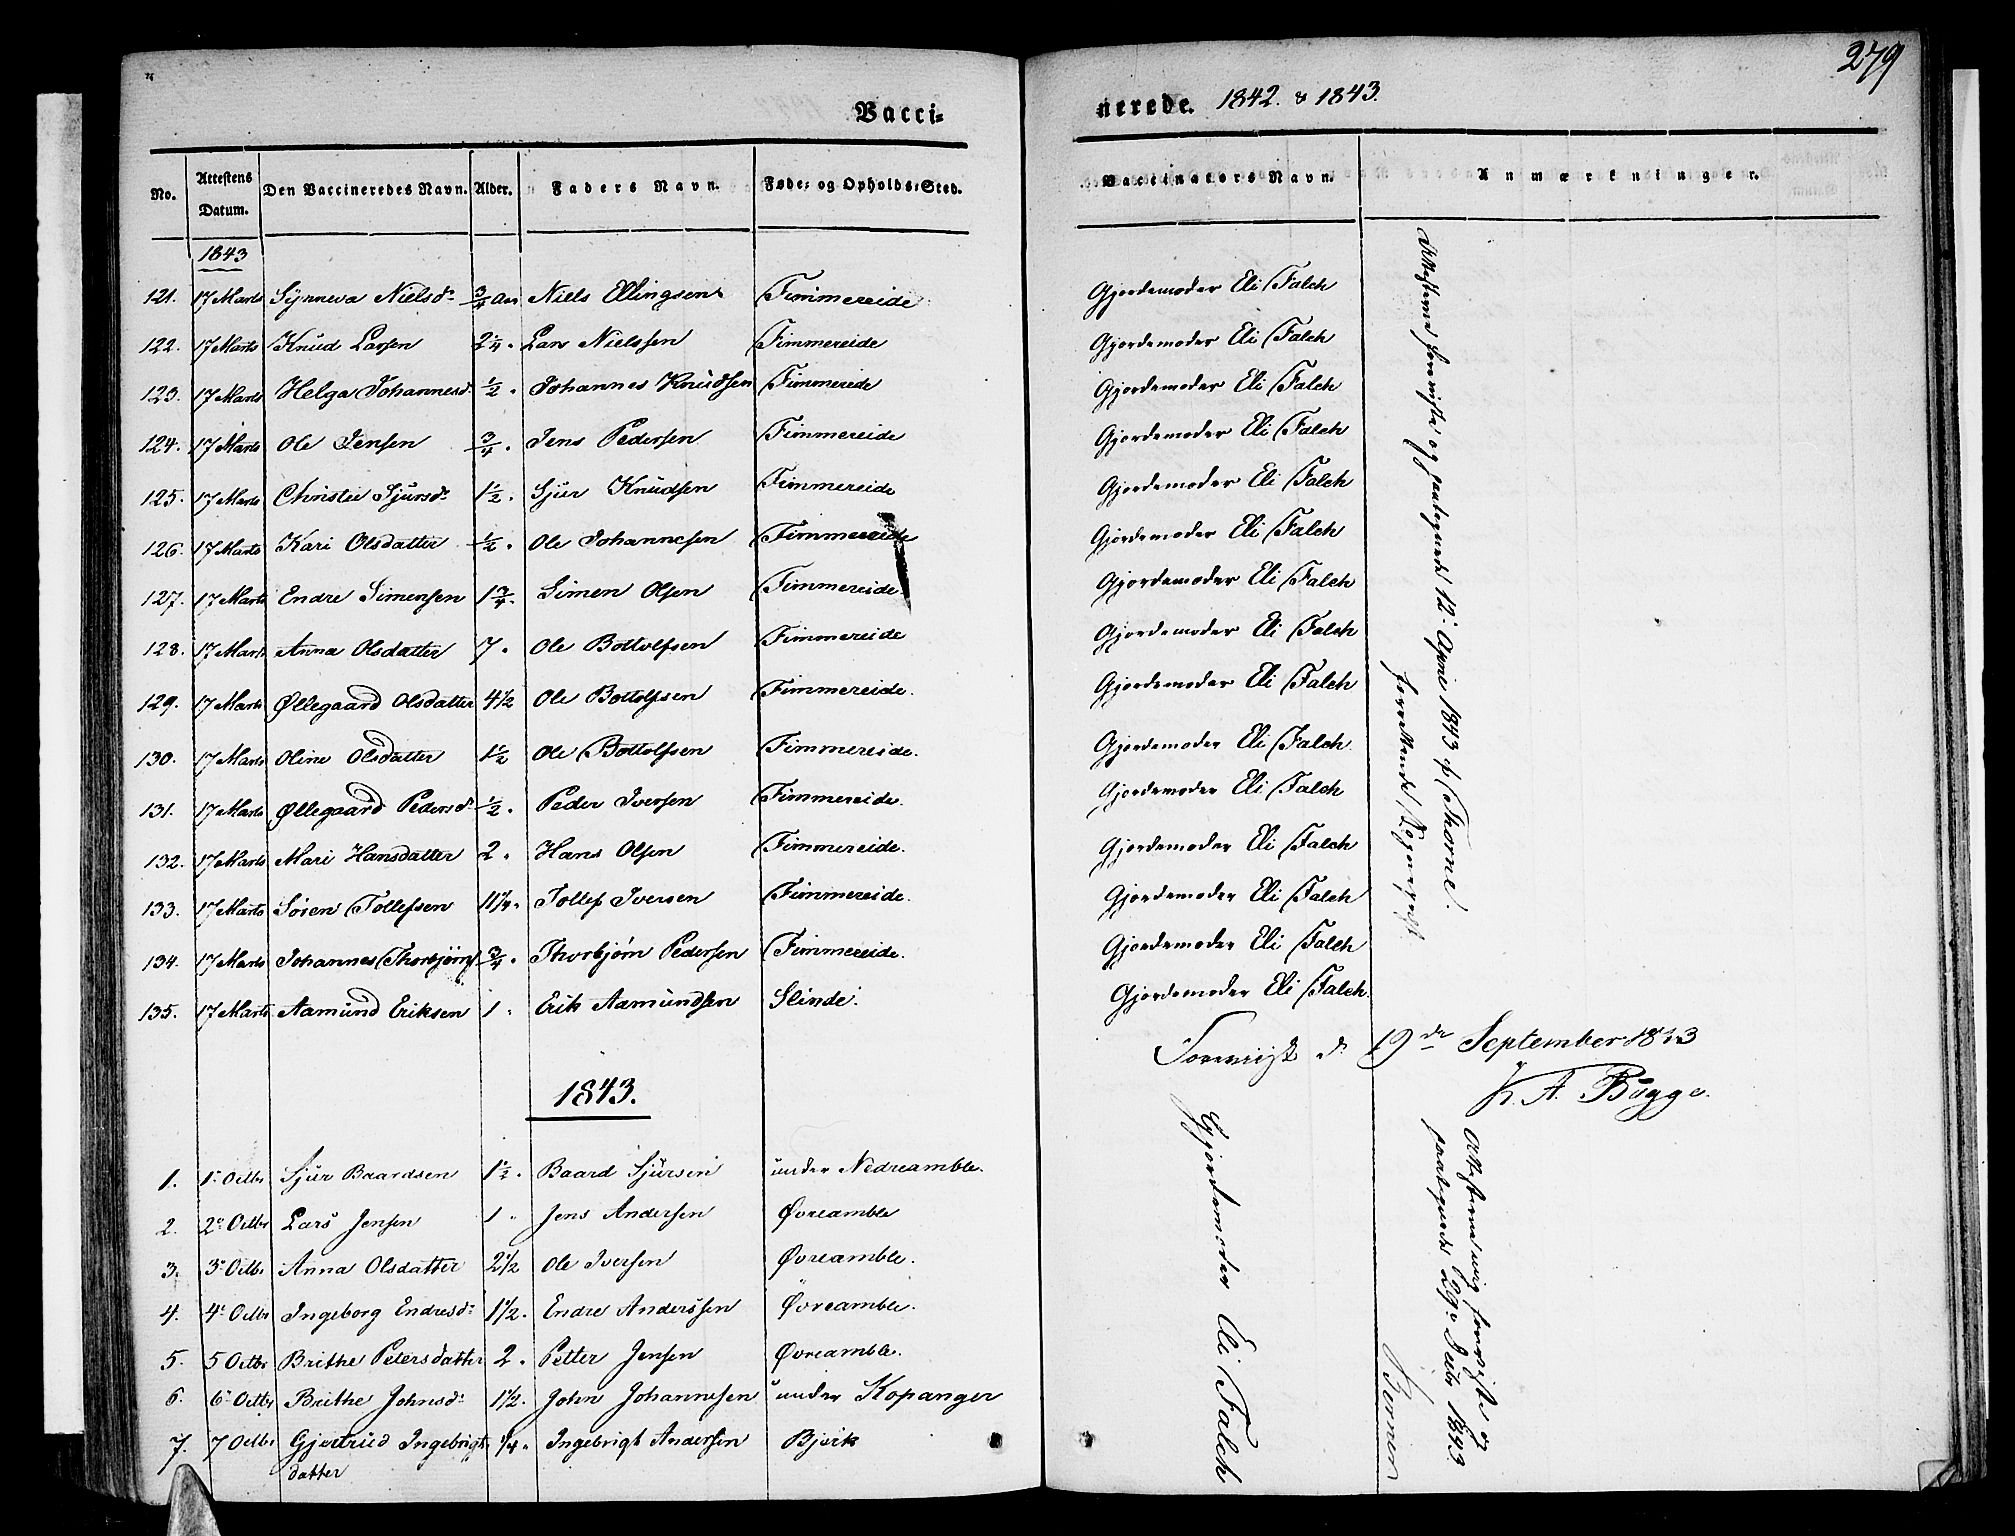 279
Vaccinerede. 1842. & 1843.
No. Attestens Datum. Den Vaccineredes Navn. Alder. Faders Navn. Føde- og Opholds-Sted. Vaccinators Navn. Anmærkninger.
1843
121. 17 Marts Synneva Nielsd. 3/4 aar Niels Ellingsen Fimmereide Gjordemoder Eli Falch
122. 17 Marts Knud Larsen 2 1/4. Lars Nielssen Fimmereide Gjordemoder Eli Falch
123. 17 Marts Helga Johannesd. 1/2. Johannes Knudsen Fimmereide Gjordemoder Eli Falch
124. 17 Marts Ole Jensen 3/4. Jens Pedersen Fimmereide Gjordemoder Eli Falch
125. 17 Marts Christie Sjursd. 1 1/2. Sjur Knudsen Fimmereide Gjordemoder Eli Falch
126. 17 Marts Kari Olsdatter 1/2. Ole Johannesen Fimmereide Gjordemoder Eli Falch
127. 17 Marts Endre Simensen 1 3/4. Simen Olsen Fimmereide Gjordemoder Eli Falch
128. 17 Marts Anna Olsdatter 7. Ole Bottolfsen Fimmereide Gjordemoder Eli Falch
129. 17 Marts Øllegaard Olsdatter 4 1/2 Ole Bottolfsen Fimmereide. Gjordemoder Eli Falch
130. 17 Marts Oline Olsdatter 1 1/2 Ole Bottolfsen Fimmereide. Gjordemoder Eli Falch
131. 17 Marts Øllegaard Pedersd. 1/2. Peder Iversen Fimmereide. Gjordemoder Eli Falch
132. 17 Marts Mari Hansdatter 2. Hans Olsen Fimmereide. Gjordemoder Eli Falch
133. 17 Marts Søren Tollefsen Tollef Iversen Fimmereide. Gjordemoder Eli Falch
134. 17 Marts Johannes Thorbjørns. 3/4. Thorbjørn Pedersen Fimmereide. Gjordemoder Eli Falch
135. 17 Marts Aamund Eriksen 1. Erik Aamundsen Slinde. Gjordemoder Eli Falch.
Attesterne foreviste og paategnede 12. April 1843 af Thorne.
Foreviist d. 19de September 1843
K. A. Bugge.
1843.
1. 1. Octbr Sjur Baardsen 1 1/2. Baard Sjursen under Nedreamble.
2. 2. Octbr Lars Jensen 1. Jens Andersen Øvreamble
3. 3. Octbr Anna Olsdatter 2 1/2 Ole Iversen Øvreamble.
4. 4. Octbr Ingeborg Endresd. 1 1/2. Endre Anderssen Øvreamble.
5. 5 Octbr Brithe Petersdatter 2. Petter Jensen Øvreamble.
6. 6. Octbr Brithe Johnsd. 1 1/2. John Johannesen under Kopanger
7. 7 Octbr Gjertrud Ingebrigtdatter 1/4. Ingebrigt Andersen Bjørk
Gjordemoder Eli Falch